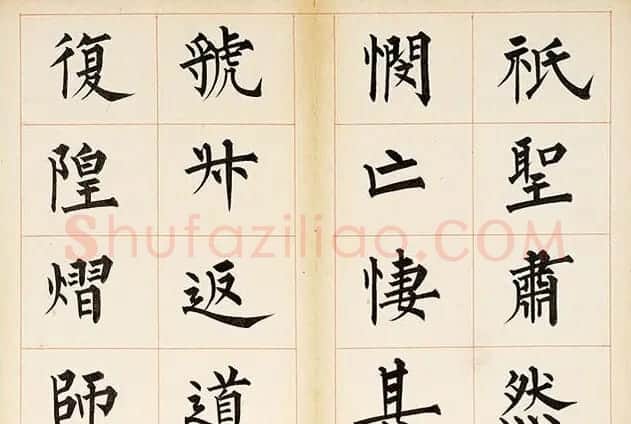 祇聖肅然
憫亡悽其
虢返道
復隍熠師
Shufaziliao.COM